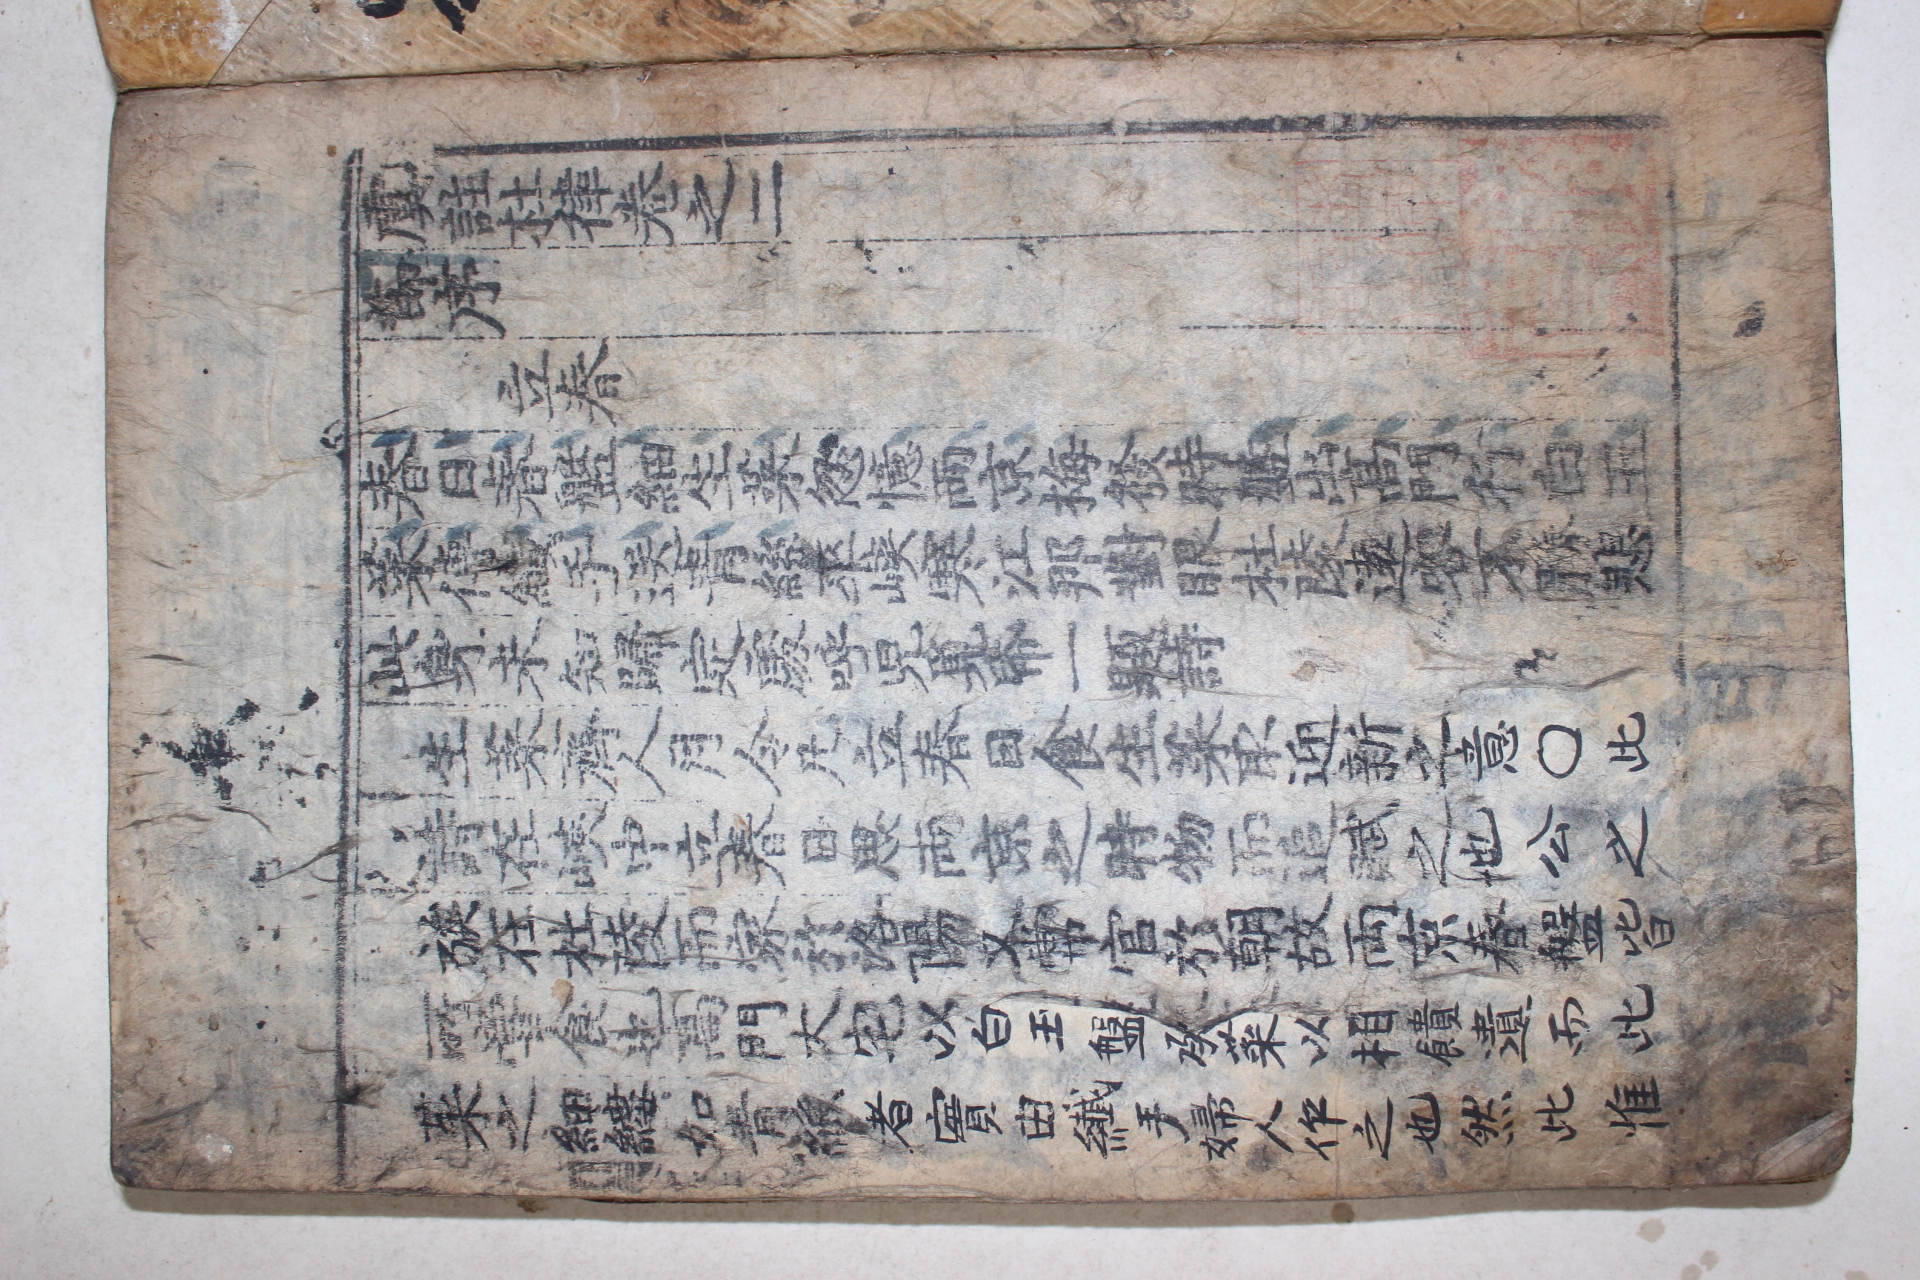 虞註杜律卷之二
節序
立春
春日春盤細生菜忽憶兩京梅發時盤出高門行白玉
菜傳纖手送青絲巫峽寒江那對眼杜陵遠客不勝悲
此身未知歸定處呼兒覓紙一題詩
生菜齊人月令凡立春日食生菜取迎新之意○此
詩在峽中立春日思兩京之時物而感賦之也公之
族在杜陵而家於洛陽又嘗官於朝故兩京春盤皆
所嘗食也高門大宅以白玉盤及菜以相饋遺而此
菜之細縷如青絲者實由纖手婦人作之也然此惟